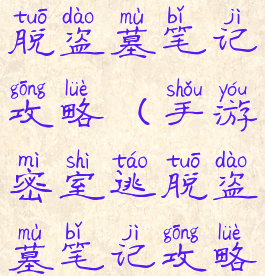 tuō dào mù bǐ jì
脱盗墓笔记
gōng lüè shǒu yóu
攻略（手游
mì shì táo tuō dào
密室逃脱盗
mù bǐ jì gōng lüè
墓笔记攻略